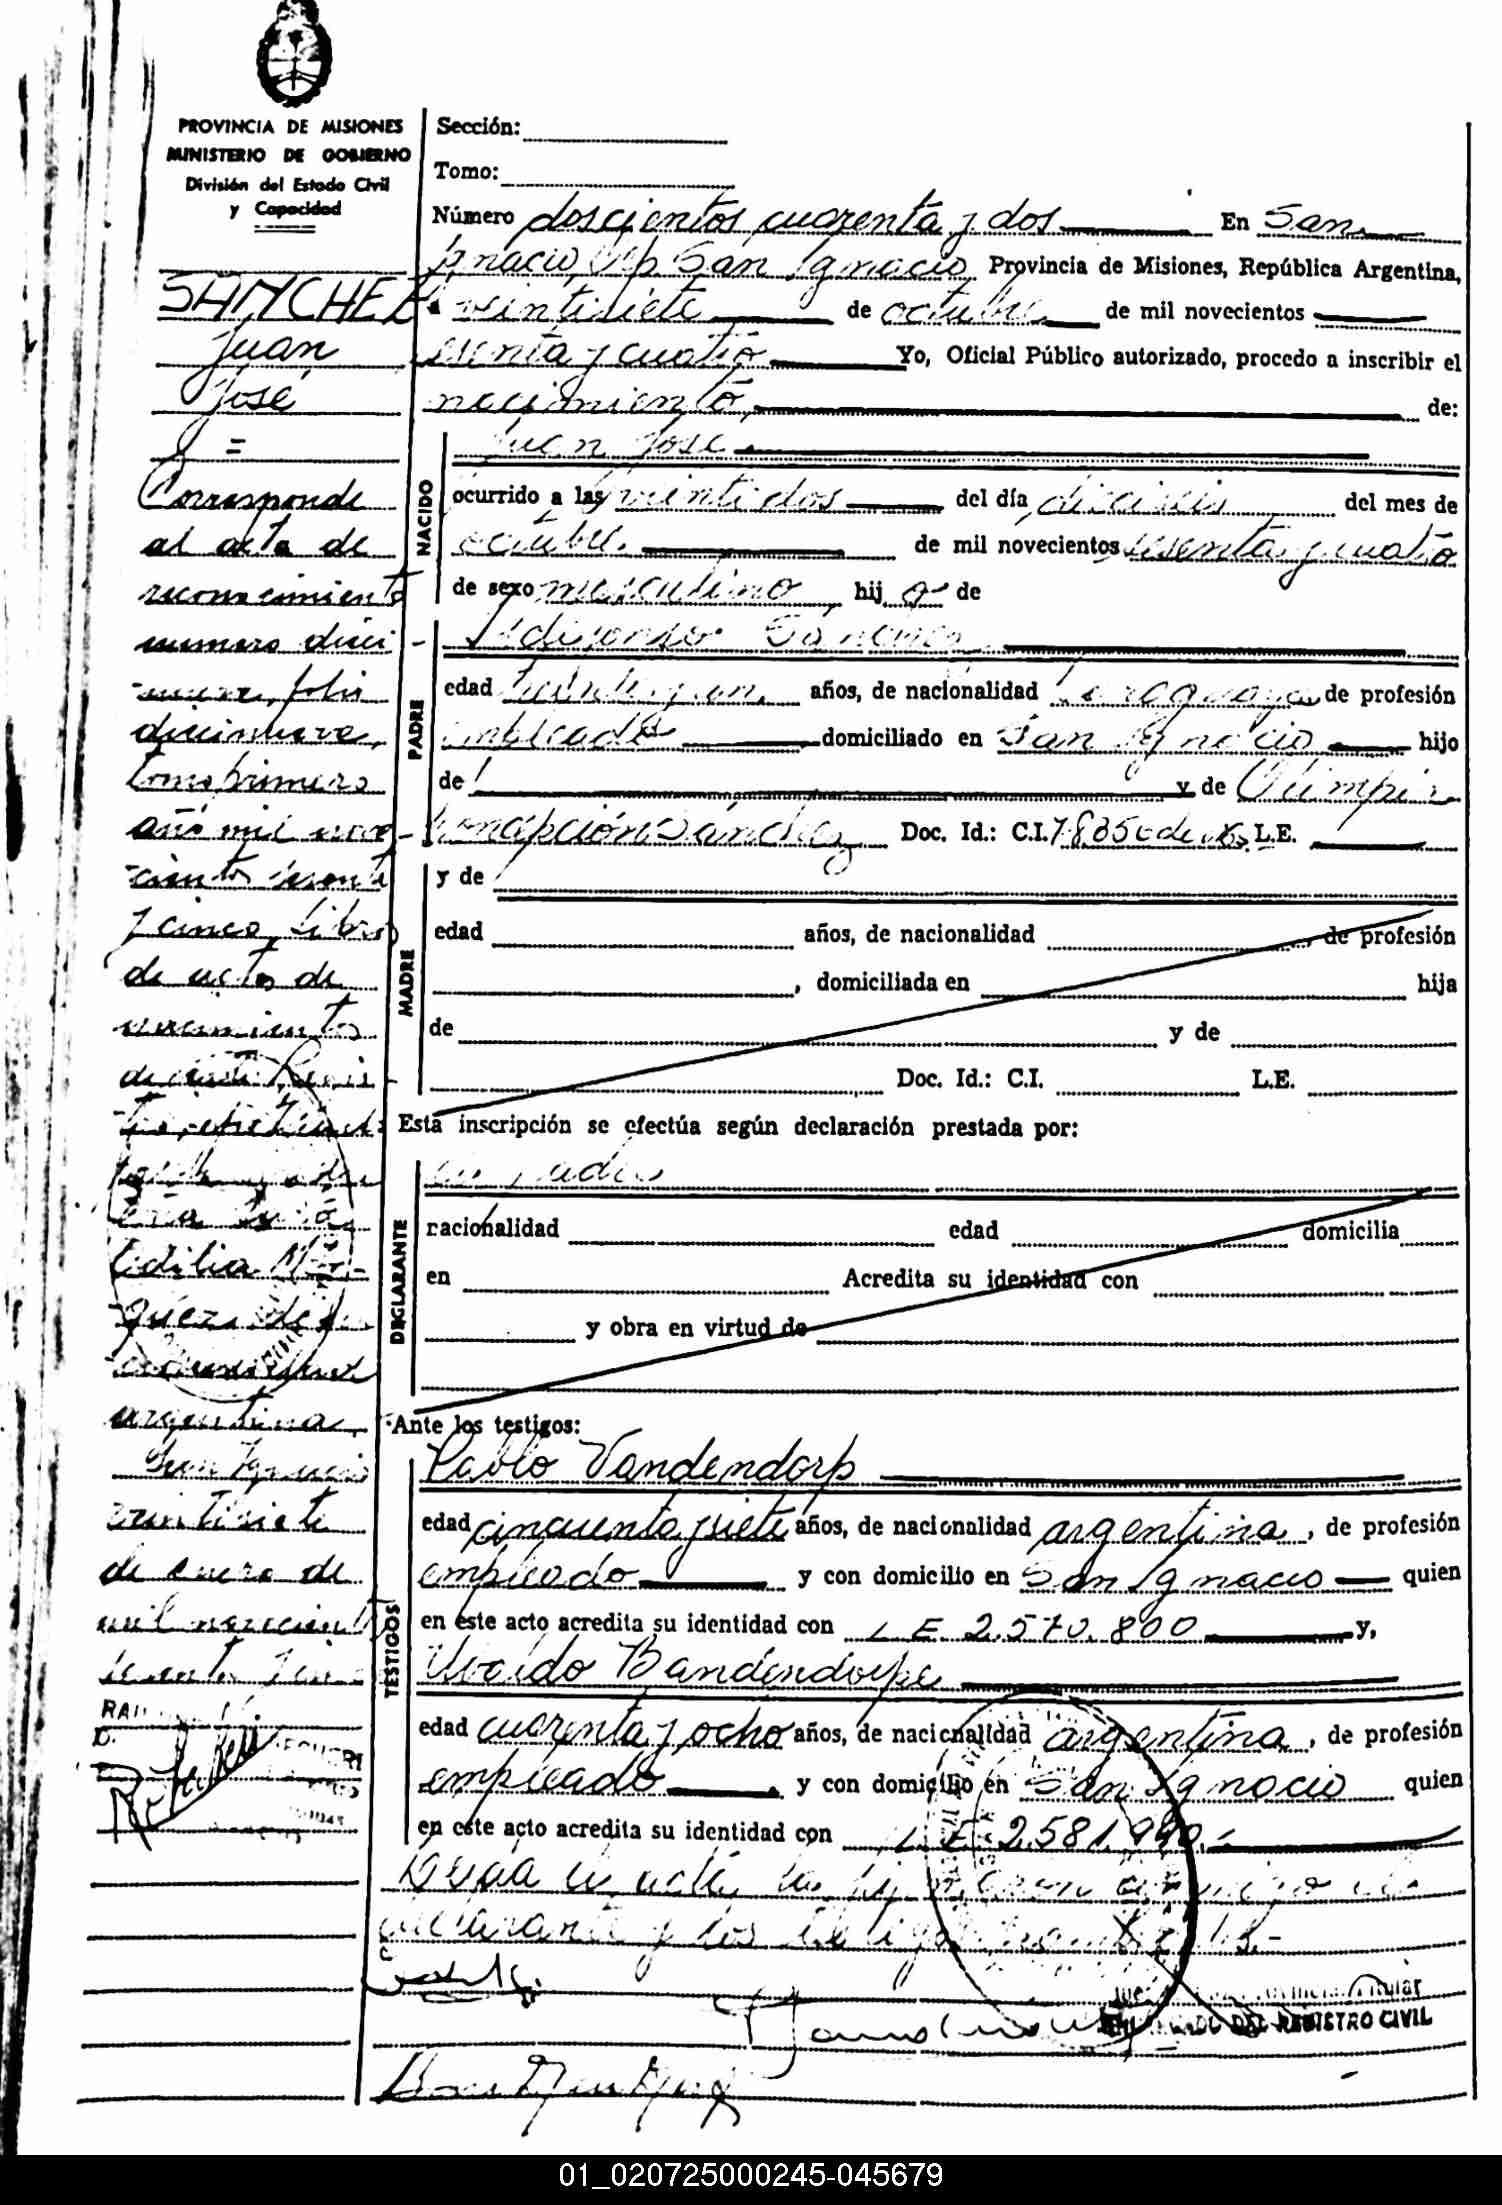 PROVINCIA DE MISIONES
MINISTERIO DE GOBIERNO
División del Estado Civil
y Capacidad
SANCHEZ
Juan
José
=
Corresponde
al acta de
reconocimiento
numero dieci
nueve, folio
diecinueve,
tomo primero
año mil nove-
ciento sesenta
y cinco, Libro
de actas de
nacimiento
de este Regis-
Edilia Mar-
quez, de
argentina,
San Ignacio
veintisiete
de enero de
mil novecientos
sesenta y cinco
Sección:
Tomo:
Número doscientos cuarenta y dos En San
Ignacio, Dep San Ignacio Provincia de Misiones, República Argentina,
a veintisiete de octubre de mil novecientos
sesenta y cuatro Yo, Oficial Público autorizado, procedo a inscribir el
nacimiento de:
NACIDO
Juan José
ocurrido a las veintidos del día dieciseis del mes de
octubre de mil novecientos sesenta y cuatro
de sexo masculino hijo de
PADRE
Ildefonso Sánchez
edad treinta y un años, de nacionalidad Paraguaya de profesión
empleado domiciliado en San Ignacio hijo
de y de Olimpia
Concepción Sánchez Doc. Id.: C.I. L.E.
MADRE
y de
edad años, de nacionalidad , de profesión
, domiciliada en hija
de y de
Doc. Id.: C.I. L.E.
Esta inscripción se efectúa según declaración prestada por:
DECLARANTE
padre
nacionalidad edad domicilia
en Acredita su identidad con
y obra en virtud de
Ante los testigos:
TESTIGOS
Pablo Vandendorp
edad cincuenta y siete años, de nacionalidad argentina, de profesión
empleado y con domicilio en San Ignacio quien
en este acto acredita su identidad con L E 2.570.800 y,
Ubaldo Bandendorpe
edad cuarenta y ocho años, de nacionalidad argentina, de profesión
empleado y con domicilio en San Ignacio quien
en este acto acredita su identidad con L E 2.581.940.-
Leída el acta, la firmaron conmigo el
declarante y los testigos
Titular
DEL REGISTRO CIVIL
01_020725000245-045679